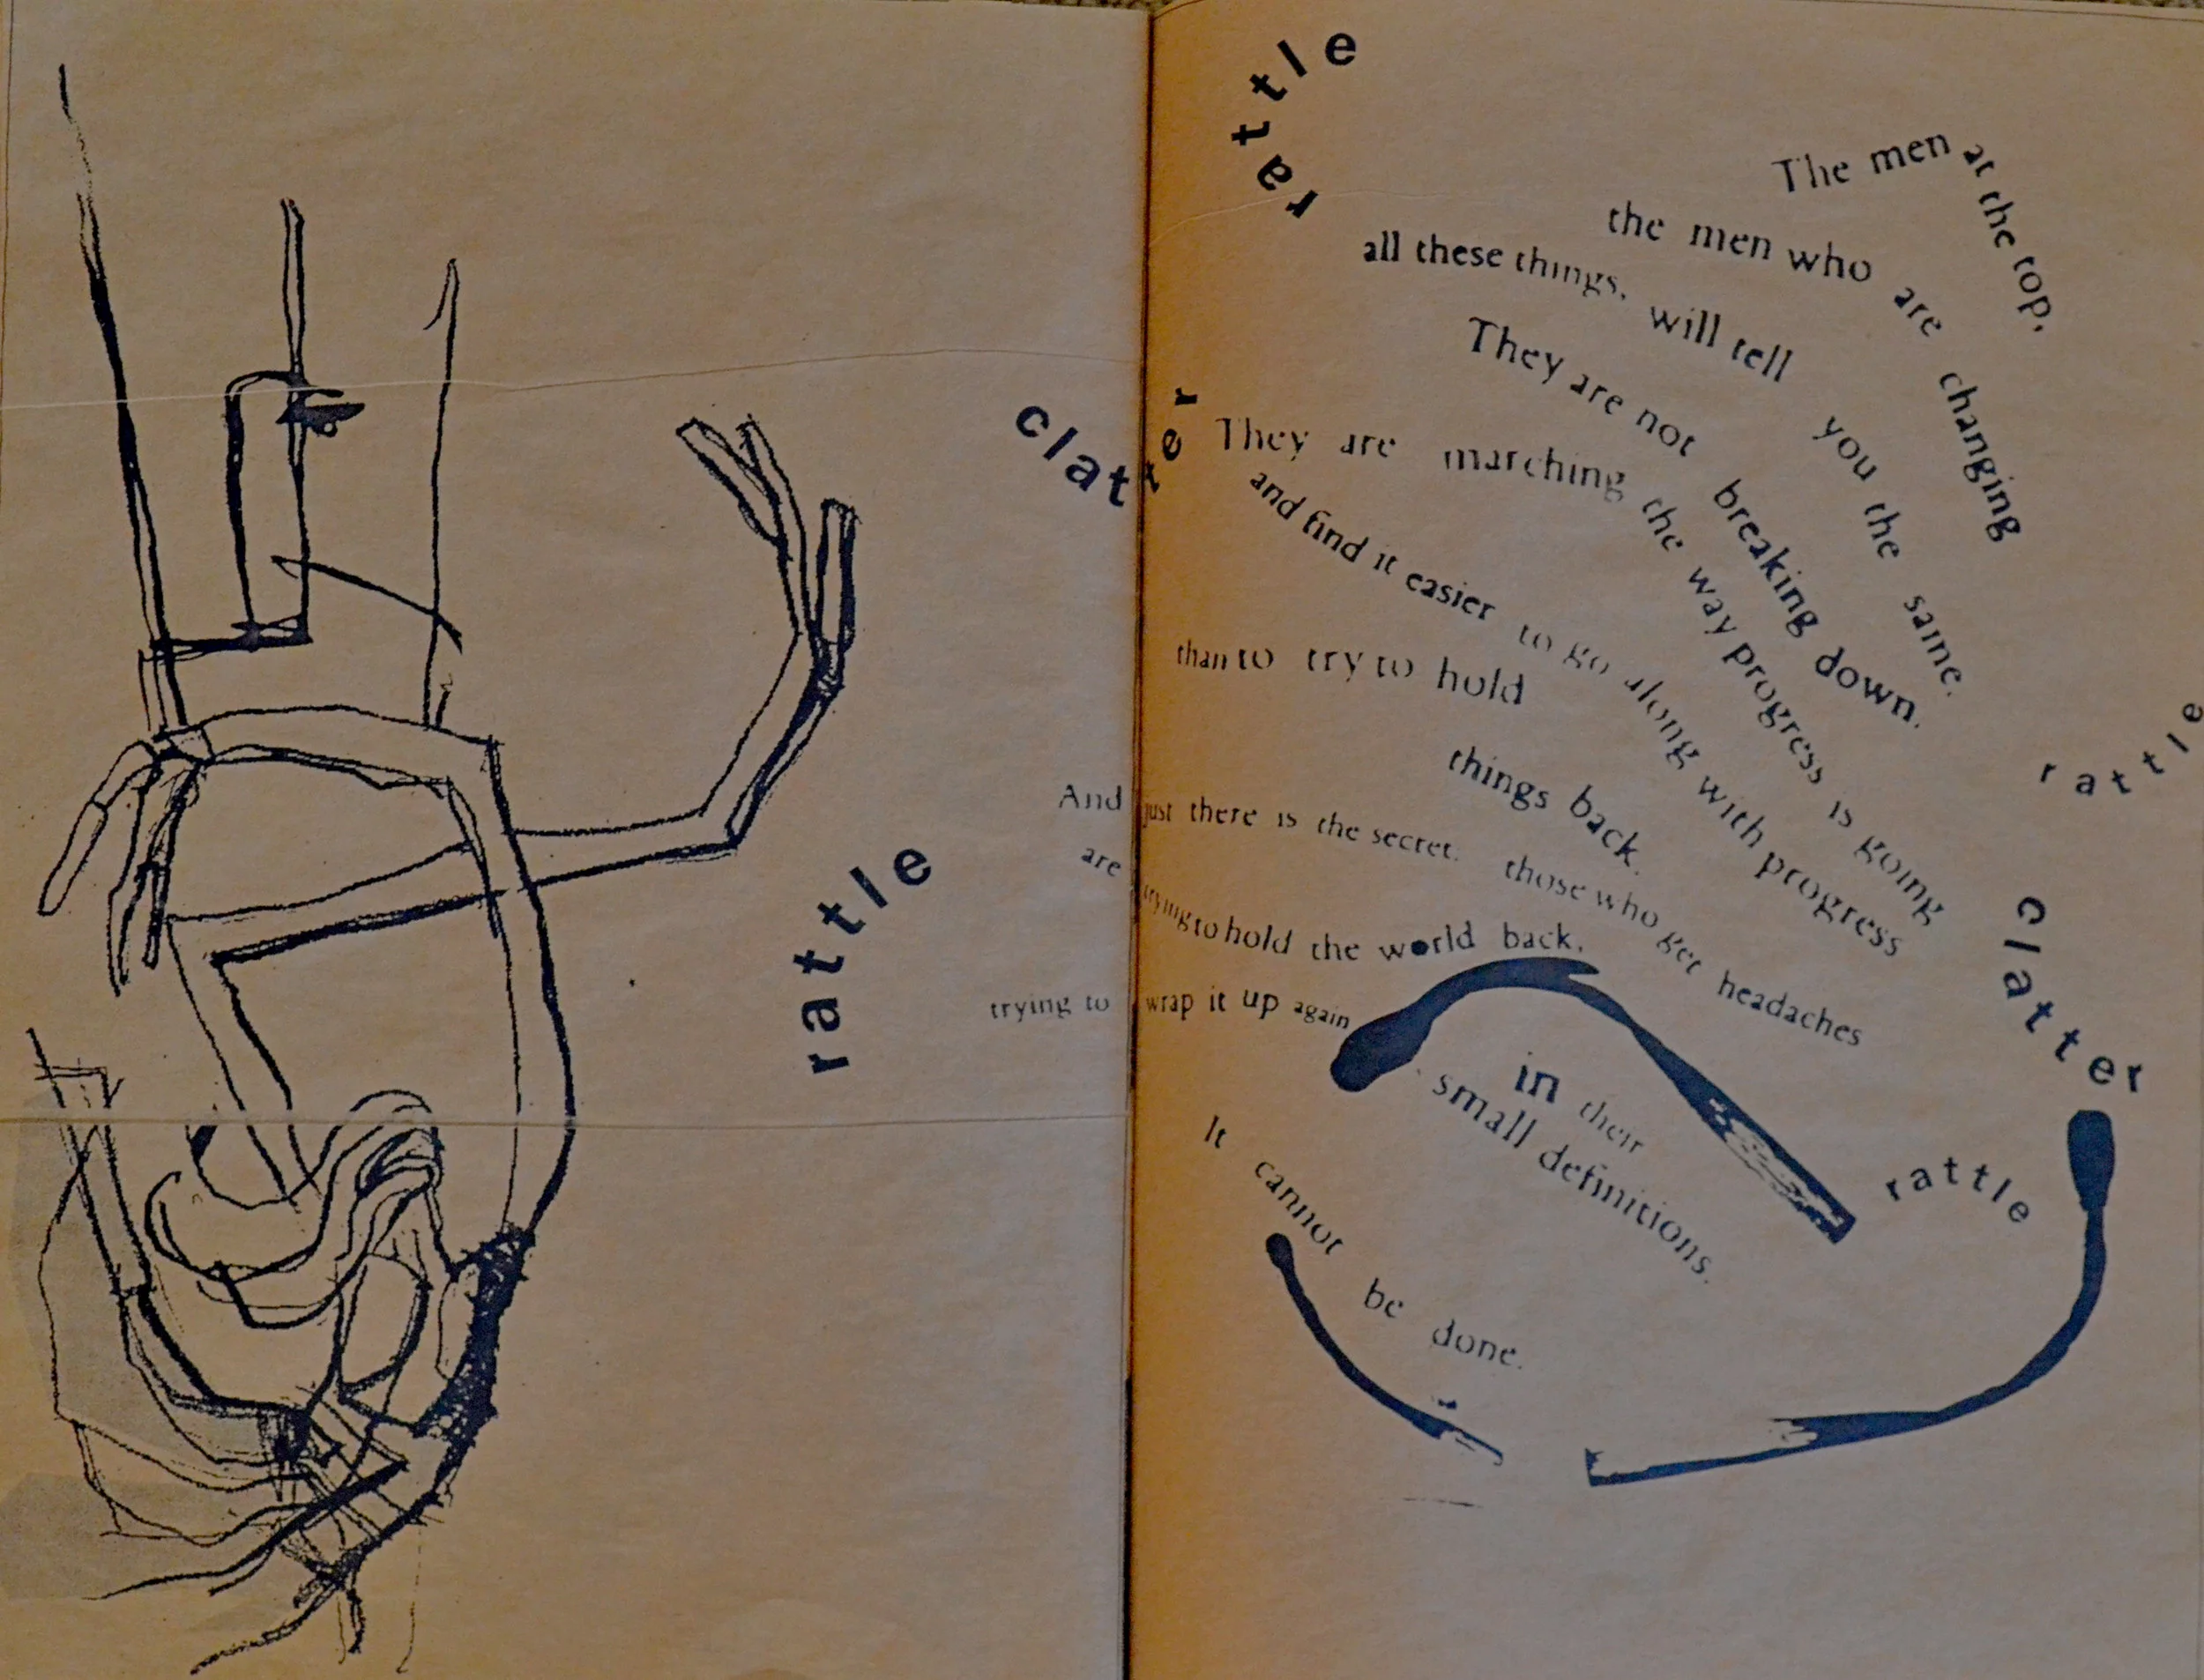 rattle
The men at the top,
the men who are changing
all these things, will tell you the same.
They are not breaking down.
clatter
They are marching the way progress is going
and find it easier to go along with progress
than to try to hold
things back.
rattle
And just there is the secret. those who get headaches
are trying to hold the world back,
rattle
clatter
trying to wrap it up again
in their
small definitions.
rattle
It cannot be done.